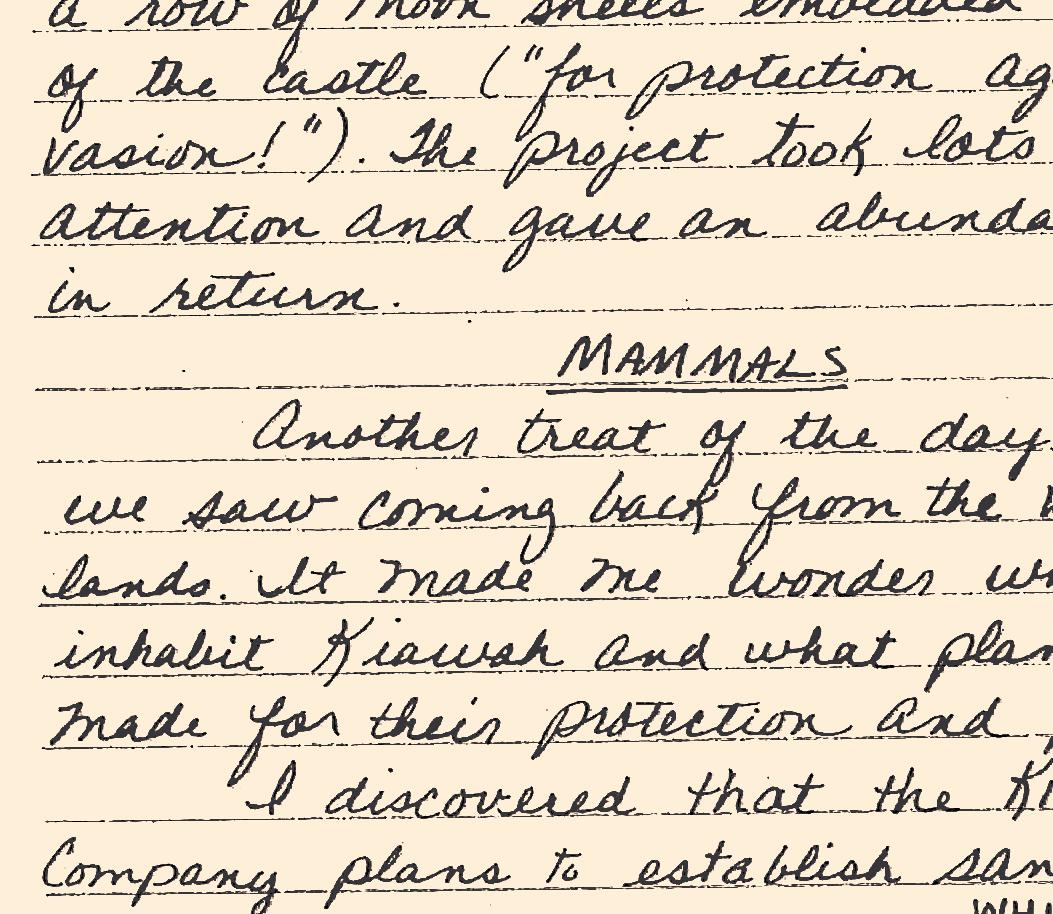 a row of moon shells embedded
of the castle ("for protection ag
vasion!"). The project took lots
attention and gave an abunda
in return.
MAMMALS
Another treat of the day
we saw coming back from the
lands. It made me wonder w
inhabit Kiawah and what plan
made for their protection and
I discovered that the Ki
Company plans to establish san
WHI